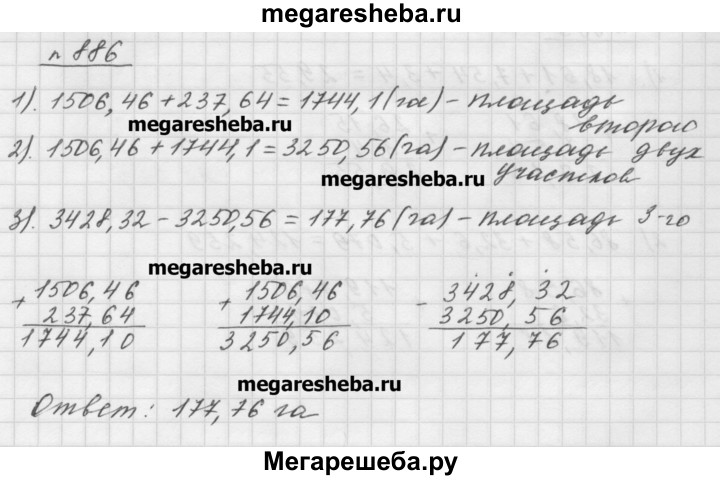 megaresheba.ru
n 886
1). 1506,46 + 237,64 = 1744,1 (га) - площадь
megaresheba.ru
второго
2). 1506,46 + 1744,1 = 3250,56 (га) - площадь двух
megaresheba.ru
участков
3). 3428,32 - 3250,56 = 177,76 (га) - площадь 3-го
megaresheba.ru
+ 1506,46 + 1506,46 - 3428,32
237,64 1744,10 3250,56
1744,10 3250,56 177,76
megaresheba.ru
Ответ: 177,76 га
Мегарешеба.ру